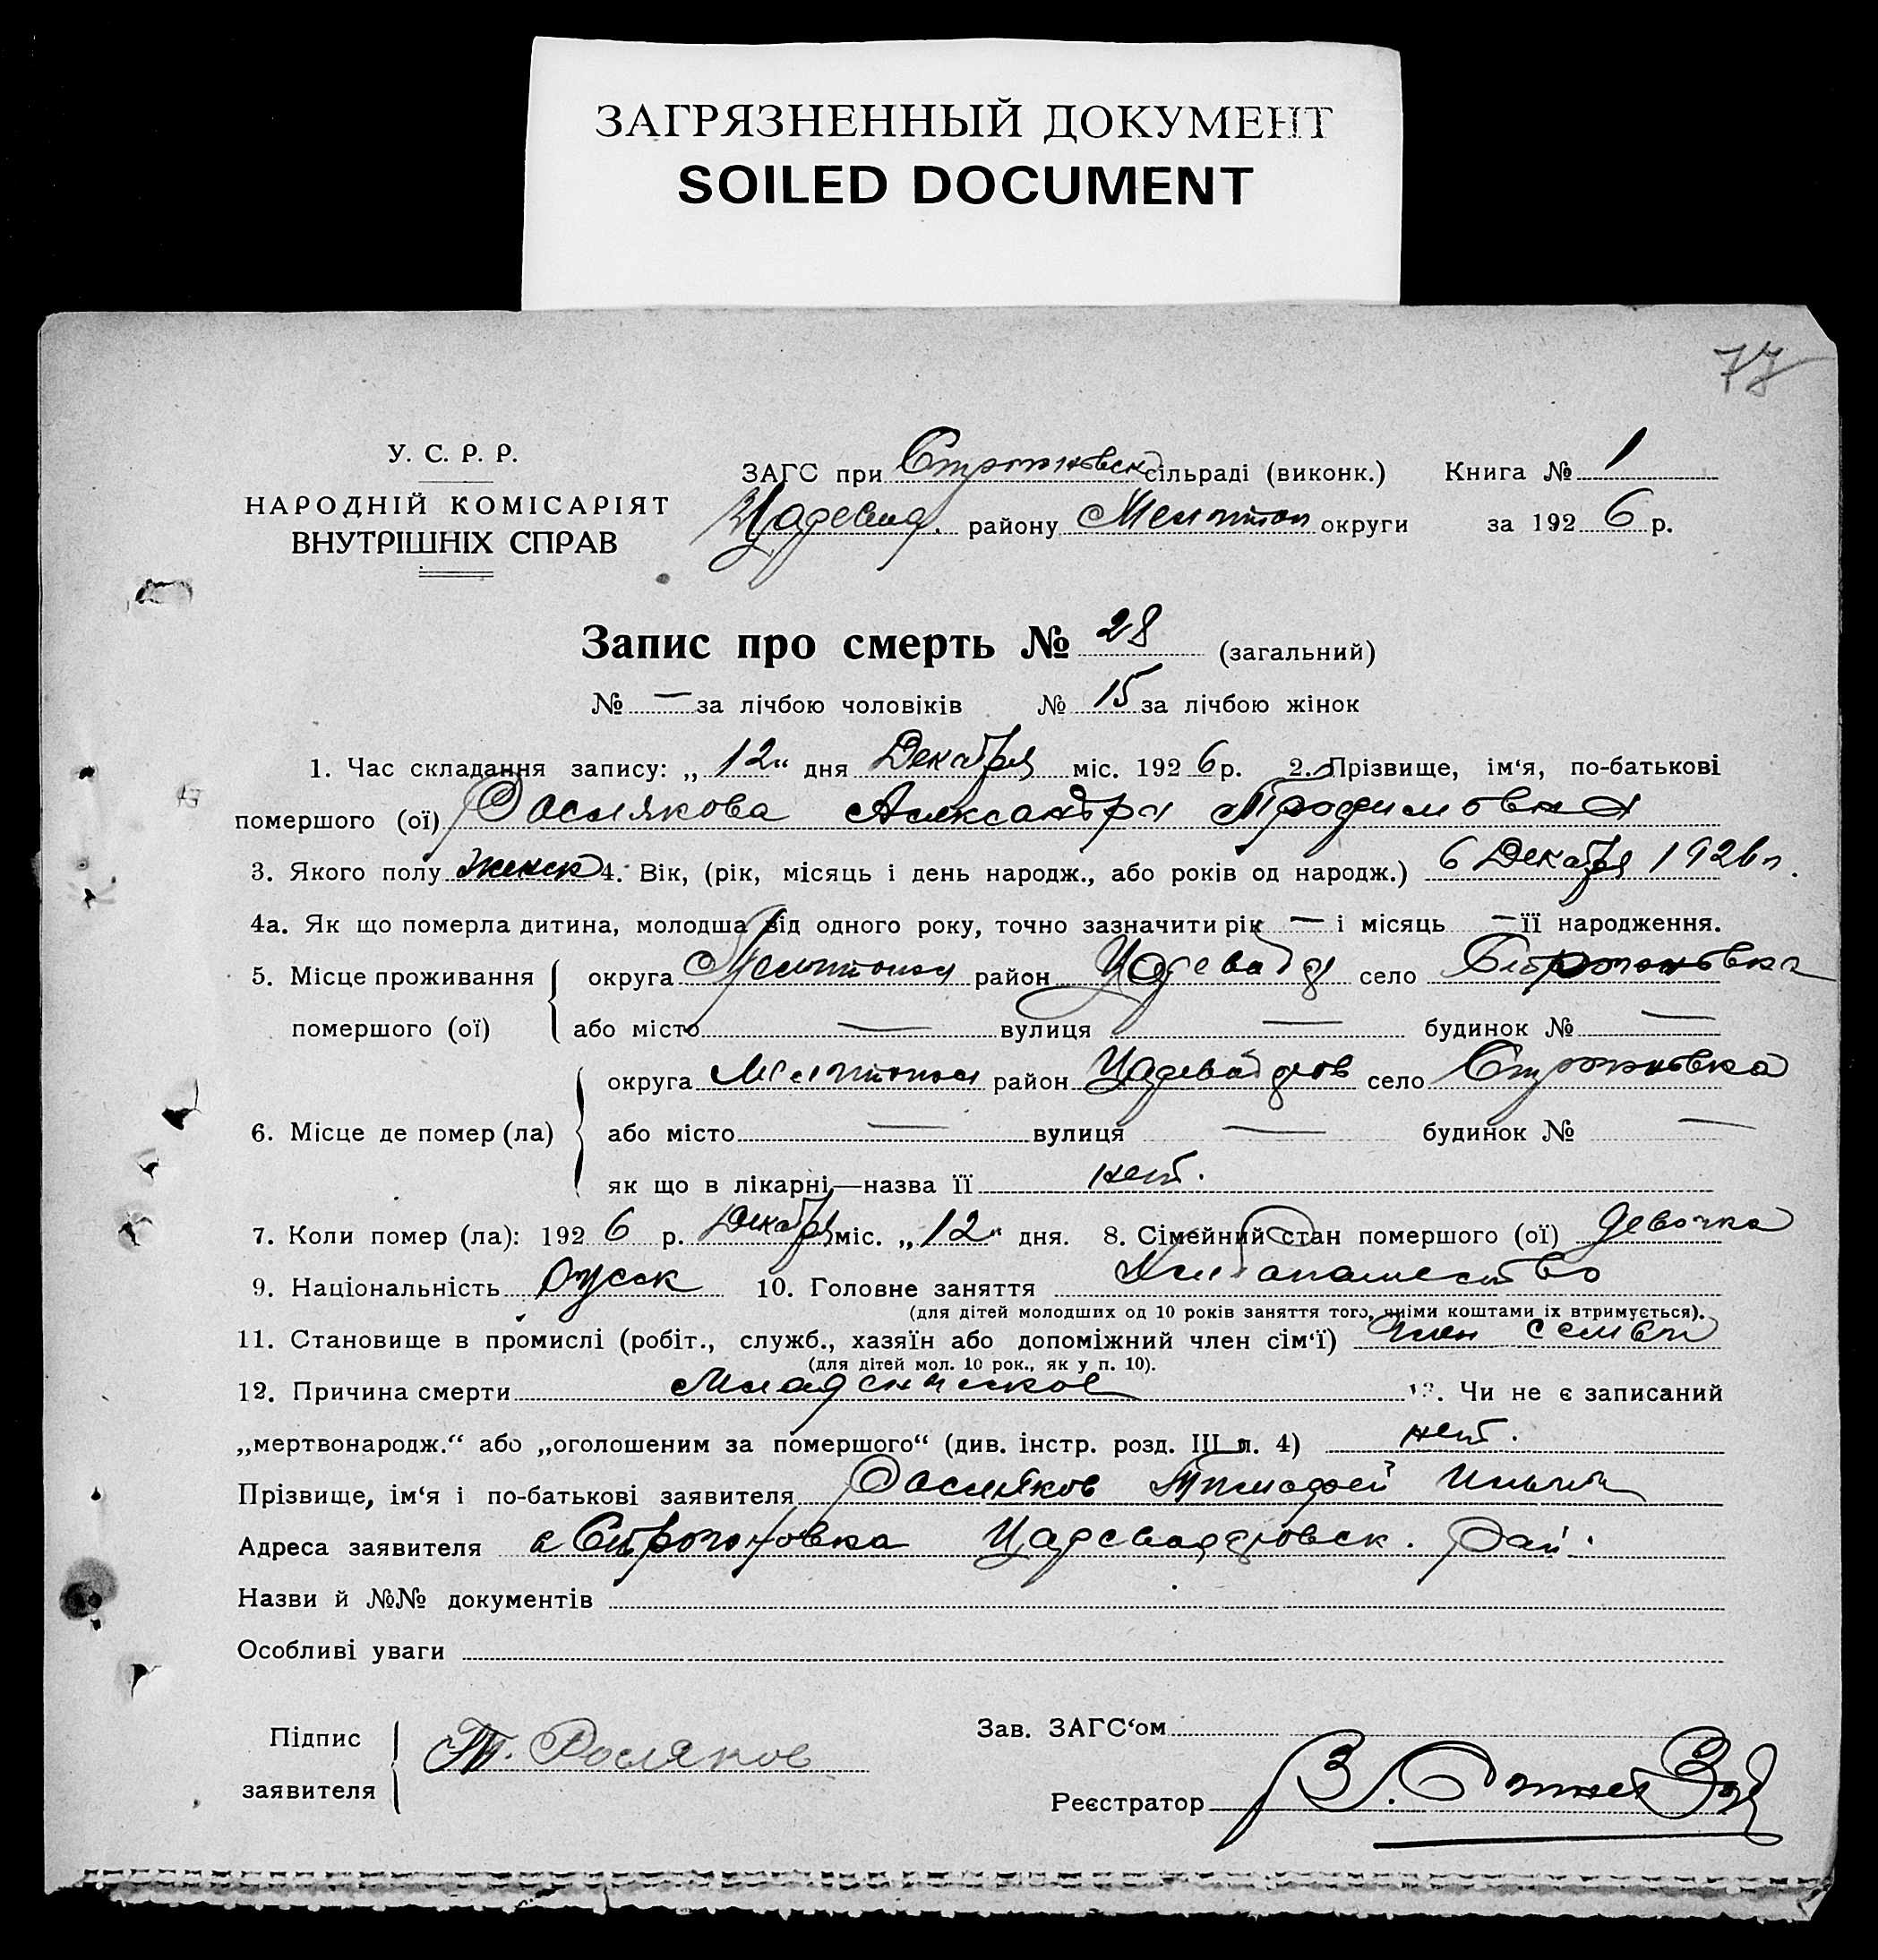 ЗАГРЯЗНЕННЫЙ ДОКУМЕНТ
SOILED DOCUMENT
77
У. С. Р. Р.
НАРОДНІЙ КОМІСАРІЯТ
ВНУТРІШНІХ СПРАВ
ЗАГС при сільраді (виконк.) Книга № 1
району Мелитоп округи за 1926 р.
Запис про смерть № 28 (загальний)
№ — за лічбою чоловіків № 15 за лічбою жінок
1. Час складання запису: „12“ дня Декабря міс. 1926 р. 2. Прізвище, ім‘я, по-батькові
помершого (ої) Рослякова Александра
3. Якого полу женск 4. Вік, (рік, місяць і день народж., або років од народж.) 6 Декабря 1926 г.
4а. Як що померла дитина, молодша від одного року, точно зазначити рік — і місяць — її народження.
5. Місце проживання округа Мелитопол район село Строгоновка
помершого (ої) або місто — вулиця — будинок № —
округа Мелитопол район село Строгоновка
6. Місце де помер (ла) або місто — вулиця — будинок № —
як що в лікарні—назва її нет.
7. Коли помер (ла): 1926 р. Декабря міс. „12“ дня. 8. Сімейний стан помершого (ої) девочка
9. Національність Русск 10. Головне заняття Хлебопашество
(для дітей молодших од 10 років заняття того, чиїми коштами їх втримується).
11. Становище в промислі (робіт., служб., хазяїн або допоміжний член сім‘ї) член семьи
(для дітей мол. 10 рок., як у п. 10).
12. Причина смерти Младенческое 13. Чи не є записаний
„мертвонародж.“ або „оголошеним за помершого“ (див. інстр. розд. III п. 4) нет.
Прізвище, ім‘я і по-батькові заявителя Росляков Тимофей Ильич
Адреса заявителя с Строгоновка Рай.
Назви й №№ документів
Особливі уваги
Підпис
заявителя
Т. Росляков
Зав. ЗАГС‘ом
Реєстратор